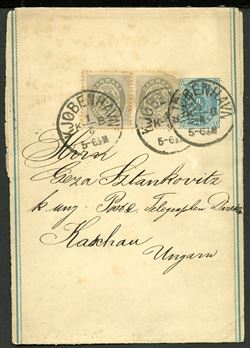 KJØBENHAVN
1
K 8
5-6 M
KJØBENHAVN
K 8
5-6 M
Herrn
Geza Sztankovitz
k. ung. Post & Telegraphen Direktor
Kaschau
Ungarn